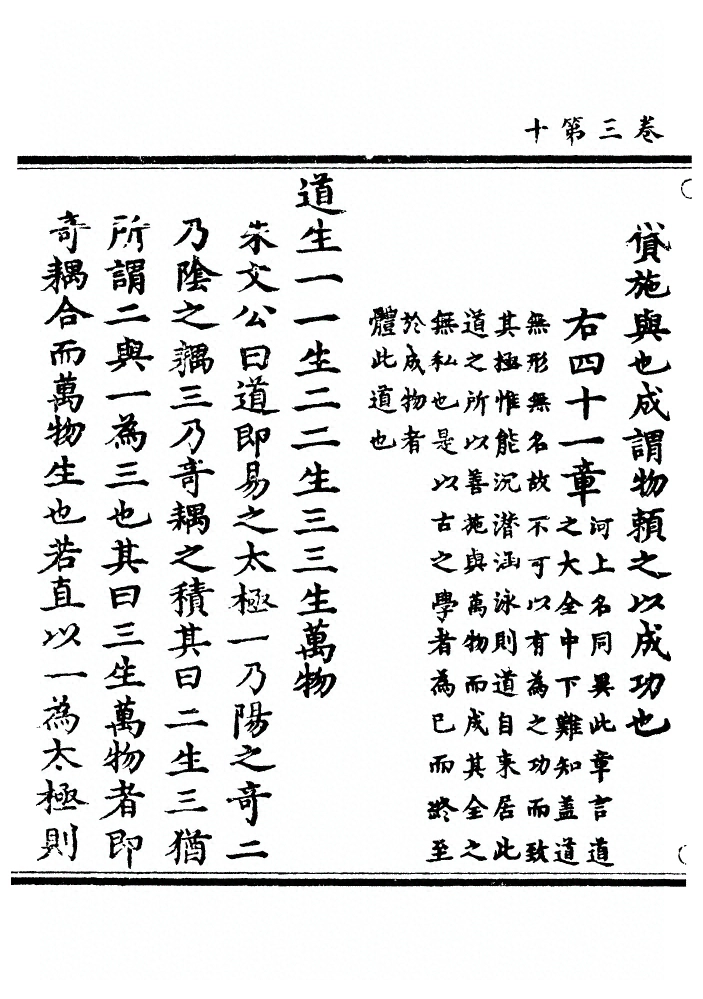 卷三第十
貸施與也成謂物賴之以成功也
右四十一章河上名同異此章言道
之大全中下難知蓋道
無形無名故不可以有為之功而致
其極惟能沉潜涵泳則道自来居此
道之所以善施與萬物而成其全之
無私也是以古之學者為已而終至
於成物者
體此道也
道生一一生二二生三三生萬物
朱文公曰道即易之太極一乃陽之奇二
乃陰之耦三乃奇耦之積其曰二生三猶
所謂二與一為三也其曰三生萬物者即
奇耦合而萬物生也若直以一為太極則